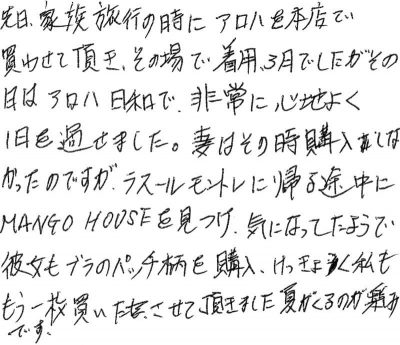 先日、家族旅行の時に アロハを本店で
買わせて頂き、その場で着用、3月でしたがその
日は アロハ日和で、非常に心地よく
1日を過せました。妻はその時購入しな
かったのですが、ラスール モントレに帰る途中に
MANGO HOUSEを見つけ、気になってたようで
彼女もブラのパッチ柄を購入、けっきょく私も
もう一枚買いたさせて頂きました 夏がくるのが楽み
です。